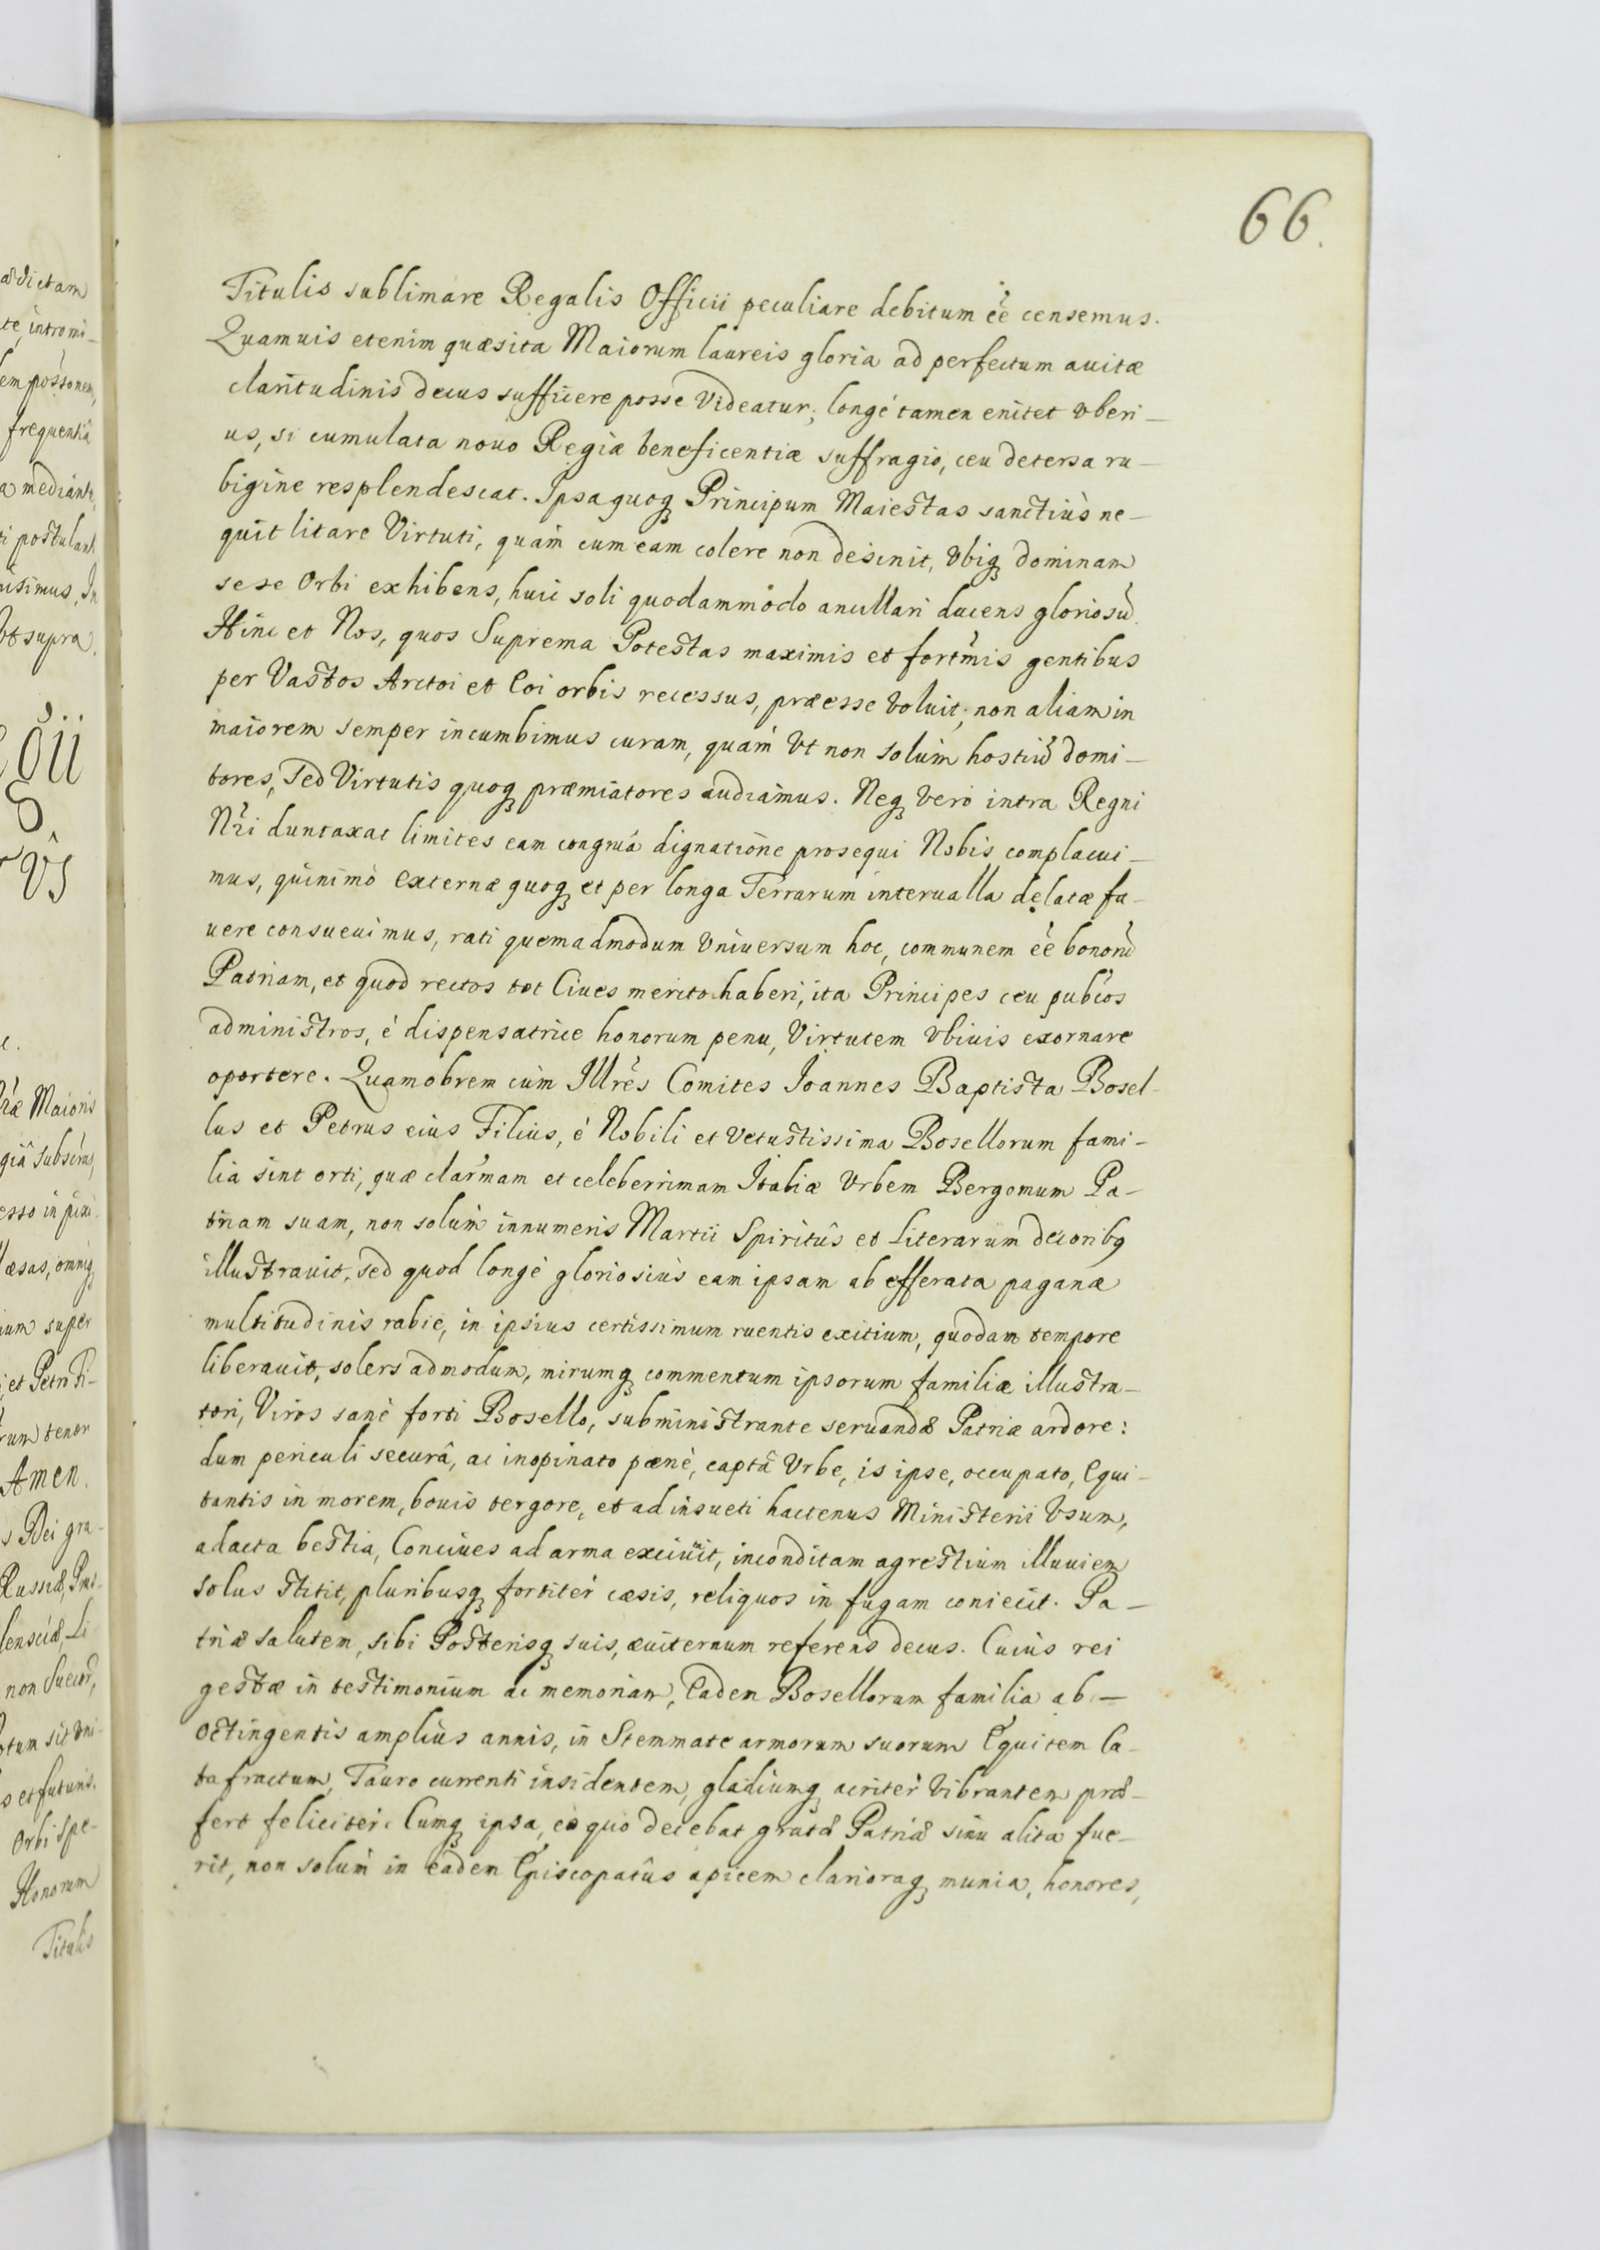 66.
Titulis sublimare Regalis Officii peculiare debitum eē censemus.
Quamuis etenim quæsita Maiorum laureis gloria ad perfectum auitæ
claritudinis decus sufficere posse Videatur; longè tamen enitet vberi-
us, si cumulata nouo Regiæ beneficentiæ suffragio, ceu detersa ru-
bigine resplendescat. Ipsa quoq Principum Maiestas sanctiùs ne-
quit litare Virtuti, quàm cum eam colere non desinit, vbiq dominam
sese Orbi exhibens, huic soli quodammodo ancillari ducens gloriosū.
Hinc et Nos, quos Suprema Potestas maximis et fortmis gentibus
per Vastos Arctoi et Eoi orbis recessus, præesse voluit, non aliam in
maiorem semper incumbimus curam, quàm Vt non solùm hostiū domi-
tores, Sed Virtutis quoq præmiatores audiamus. Neq verò intra Regni
Nri duntaxat limites eam congruâ dignatione prosequi Nobis complacui-
mus, quinimò externæ quoq et per longa Terrarum interualla delatæ fa-
uere consueuimus, rati quemadmodum Vniuersum hoc, communem eē bonorū
Patriam, et quod rectos tot Ciues merito haberi, ita Principes ceu pubcos
administros, è dispensatrice honorum penu, Virtutem vbiuis exornare
oportere. Quamobrem cùm Illres Comites Joannes Baptista Bosel-
lus et Petrus eius Filius, è Nobili et vetustissima Bosellorum fami-
lia sint orti, quæ clarmam et celeberrimam Italiæ Vrbem Bergomum Pa-
triam suam, non solùm innumeris Martii Spiritûs et Literarum decoribq
illustrauit, sed quod longè gloriosiùs eam ipsam ab efferata paganæ
multitudinis rabie, in ipsius certissimum ruentis exitium, quodam tempore
liberauit, solers admodum, mirumq commentum ipsorum familiæ illustra-
tori, Viros sanè forti Bosello, subministrante seruandæ Patriæ ardore:
dum periculi securâ, ac inopinato pænè, captâ Vrbe, is ipse, occupato, Equi-
tantis in morem, bouis tergore, et ad insueti hactenus Ministerii Vsum,
adacta bestia, Conciues ad arma exciuit, inconditam agrestium illuuiem
solus stitit, pluribusq fortitèr cæsis, reliquos in fugam coniecit. Pa-
triæ salutem, sibi Posterisq suis, æuiternum referens decus. Cuius rei
gestæ in testimonium ac memoriam, Eadem Bosellorum familia ab-
octingentis ampliùs annis, in Stemmate armorum suorum Equitem Ca-
tafractum, Tauro currenti insidentem, gladiumq acritèr vibrantem præ-
fert felicitèr. Cumq ipsa, eo quo decebat gratæ Patriæ sinu alita fue-
rit, non solùm in eâdem Episcopatûs apicem clarioraq munia, honores,